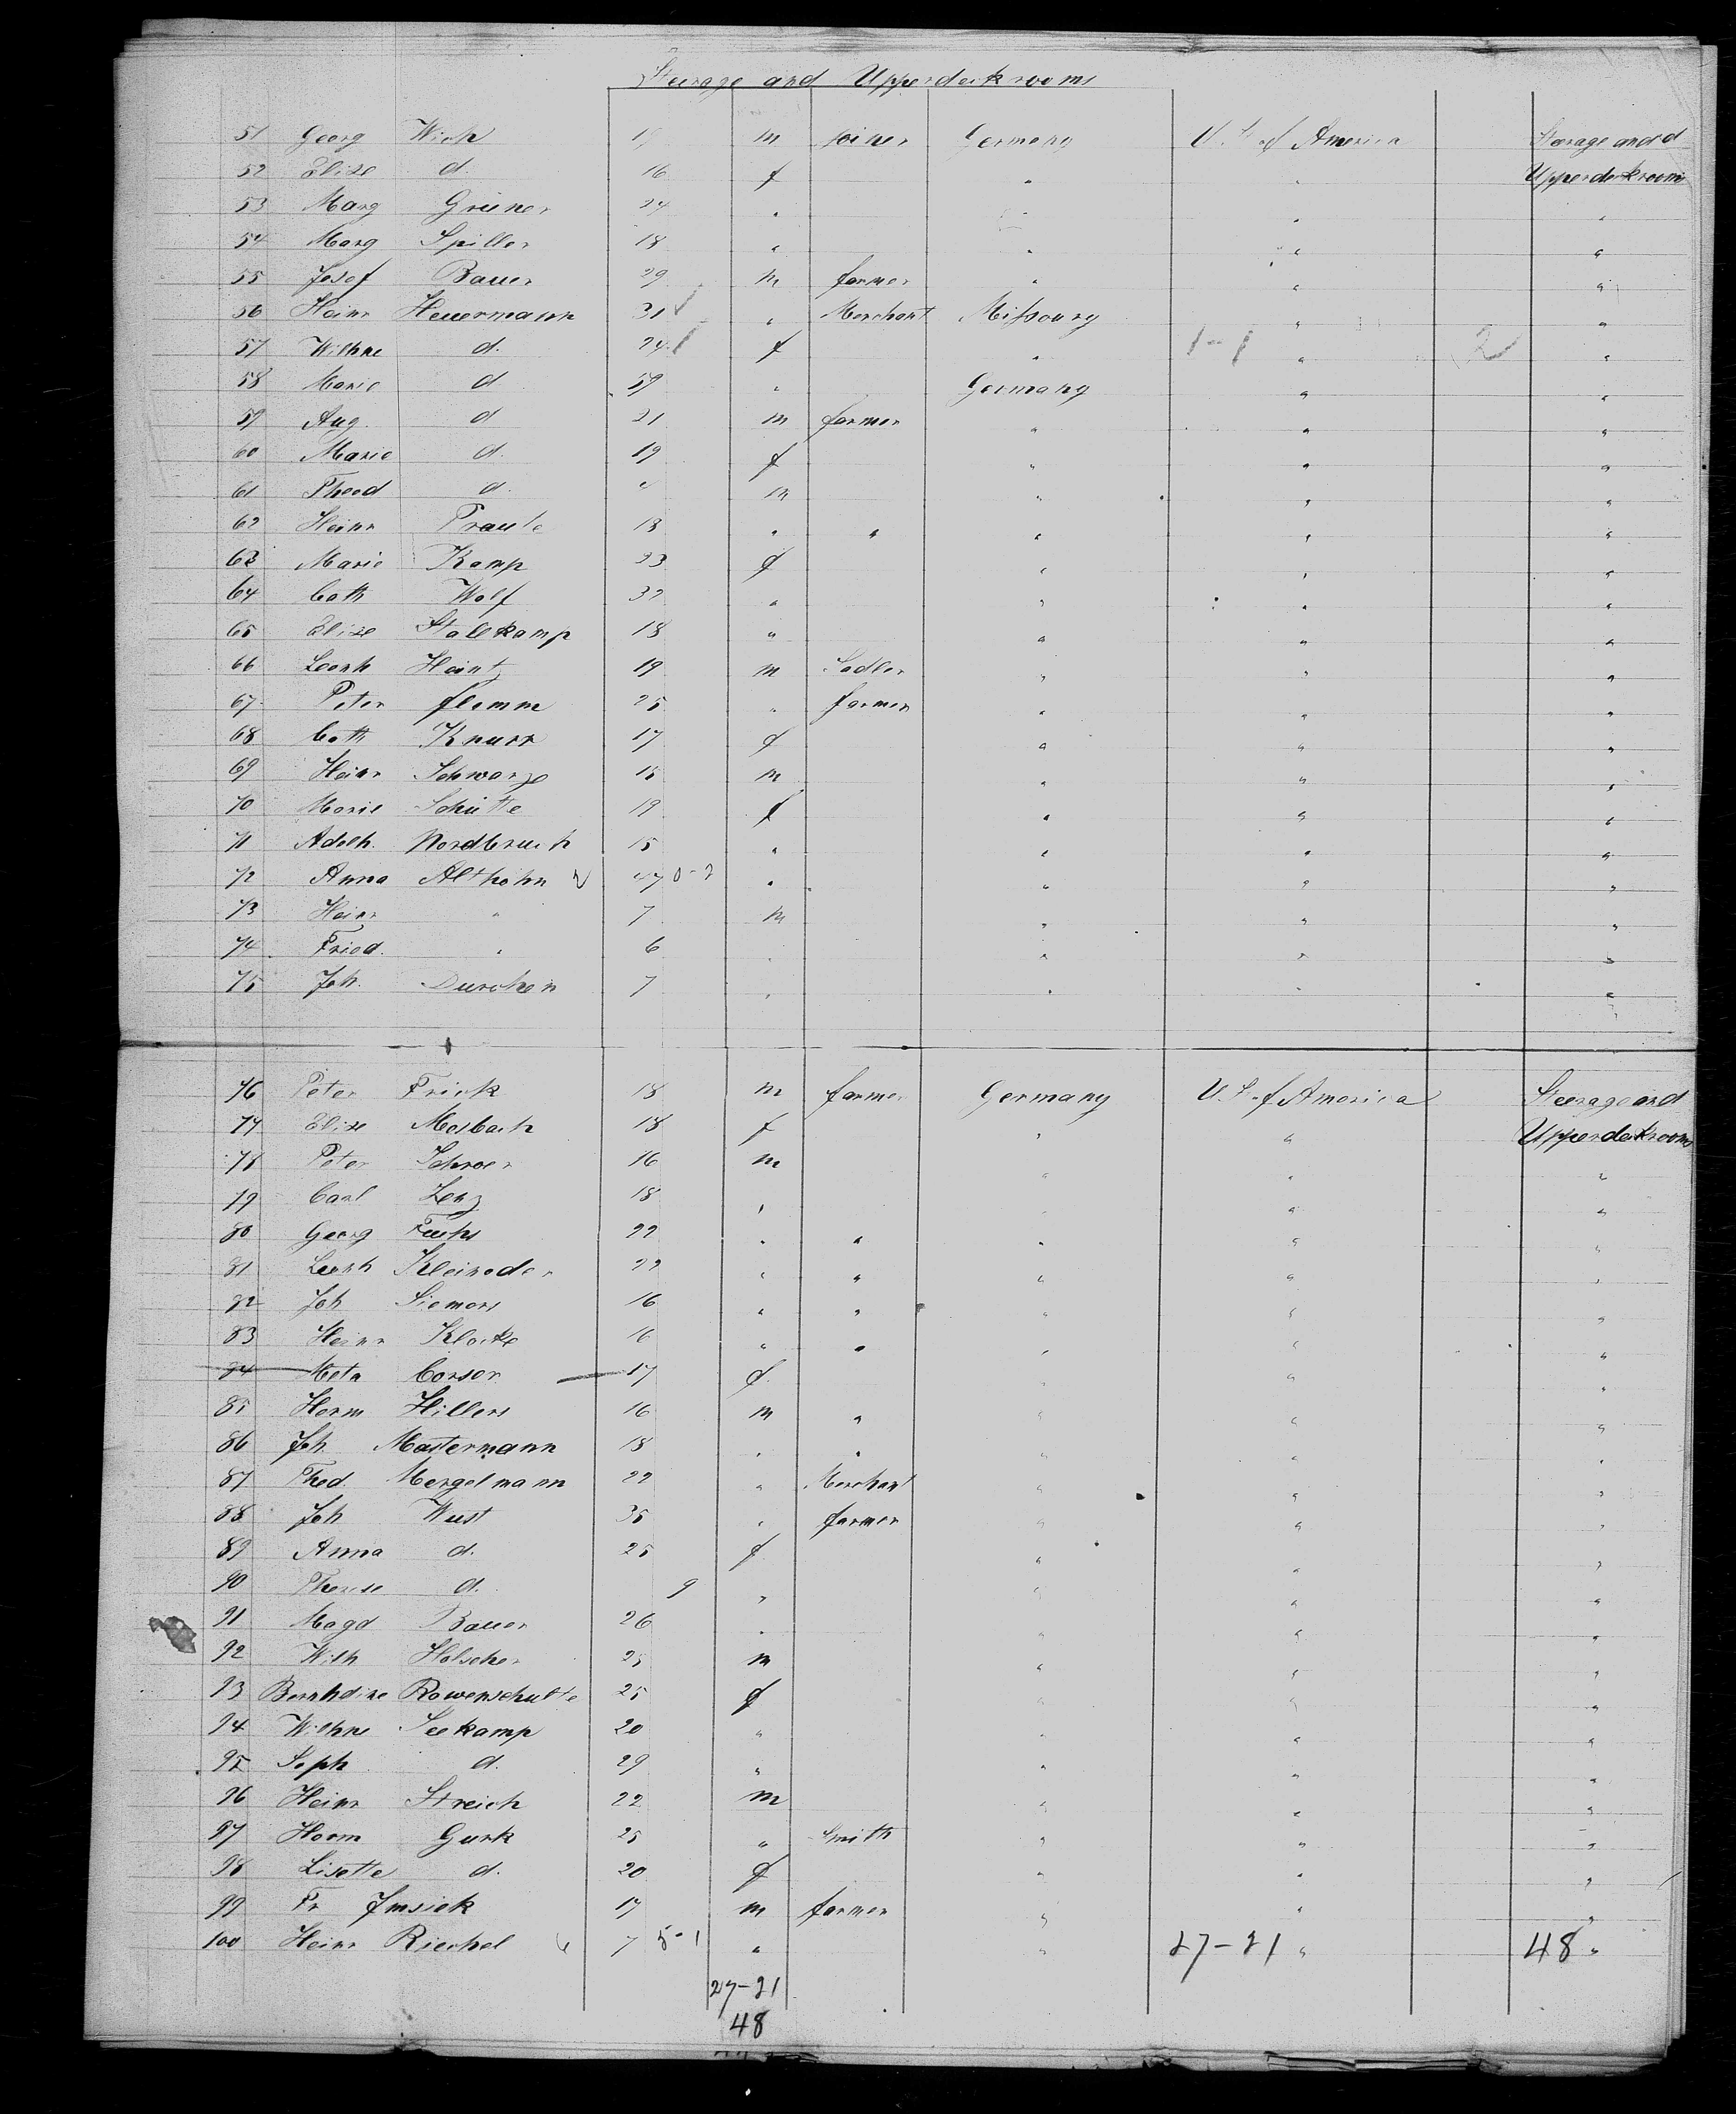 Steerage and Upperdeckrooms
51 Georg Wich 19 m joiner Germany U. S. of America Steerage and
52 Elise d. 16 f " " Upperdeckrooms
53 Marg Gruner 24 " " " "
54 Marg Spiller 18 " " " "
55 Josef Bauer 29 m farmer " " "
56 Heinr Heuermann 31 " Merchant Missoury " "
57 Wilhne d. 24 f " 1-1 " 2 "
58 Marie d 59 " Germany " "
59 Aug. d 21 m farmer " " "
60 Marie d. 19 f " " "
61 Theod d. m " " "
62 Heinr Traute 18 " " " " "
63 Marie Kamp 23 f " " "
64 Cath Wolf 32 " " " "
65 Elise Stallkamp 18 " " " "
66 Leonh Heintz 19 m Sadler " " "
67 Peter flemm 25 " farmer " " "
68 Cath Knurr 17 f " " "
69 Heinr Schwarze 15 m " " "
70 Marie Schütte 19 f " " "
71 Adelh. Nordbruch 15 " " " "
72 Anna Althohn 47 0-2 " " " "
73 Heinr " 7 m " " "
74 Fried. " 6 " " " "
75 Joh. Durchen 7 " " " "
76 Peter Frick 18 m farmer Germany U. S. of America Steerage and
77 Elise Mosbach 18 f " " Upperdeckrooms
78 Peter Schroer 16 m " " "
79 Carl Lenz 18 " " " "
80 Georg Fuchs 22 " " " " "
81 Leonh Kleinoder 22 " " " " "
82 Joh Siemers 16 " " " " "
83 Heinr Klocke 16 " " " " "
84 Meta Corson 17 f " " "
85 Herm Hillers 16 m " " " "
86 Joh. Mastermann 18 " " " " "
87 Thed. Mergelmann 22 " Merchant " " "
88 Joh Wust 35 " farmer " " "
89 Anna d. 25 f " " "
90 Therese d. 9 " " " "
91 Magd Bauer 26 " " " "
92 Wilh Holscher 25 m " " "
93 Bernhdine Rowenschutte 25 f " " "
94 Wilhne Seekamp 20 " " " "
95 Soph d. 29 " " " "
96 Heinr Streich 22 m " " "
97 Herm Gurk 25 " Smith " " "
98 Lisette d. 20 f " " "
99 Fr Imsiek 17 m farmer " " "
100 Heinr Riechel 7 5-1 " " 27-21 " 48 "
27-21
48